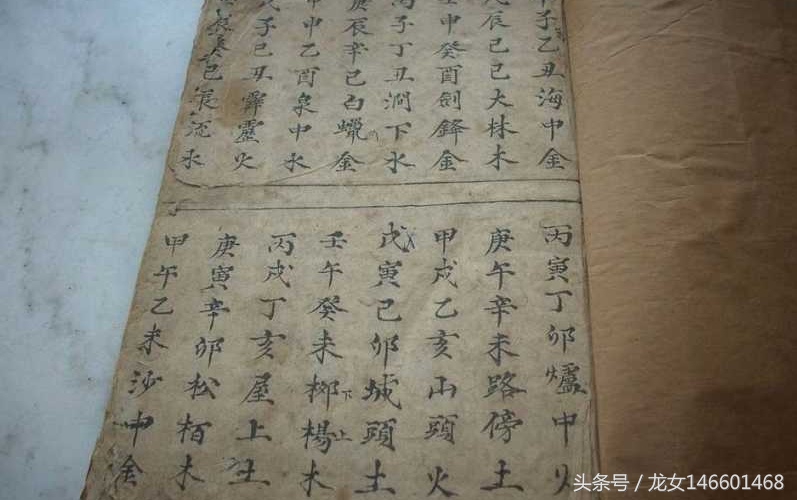 子乙丑海中金
辰己巳大林木
申癸酉劍鋒金
子丁丑澗下水
庚辰辛巳白蠟金
申乙酉泉中水
戊子己丑火
辰癸巳長流水
丙寅丁卯爐中火
庚午辛未路傍土
甲戌乙亥山頭火
戊寅己卯城頭土
壬午癸未柳楊木
下上
丙戌丁亥屋上土
庚寅辛卯松栢木
甲午乙未沙中金
头条号 / 龙女146601468